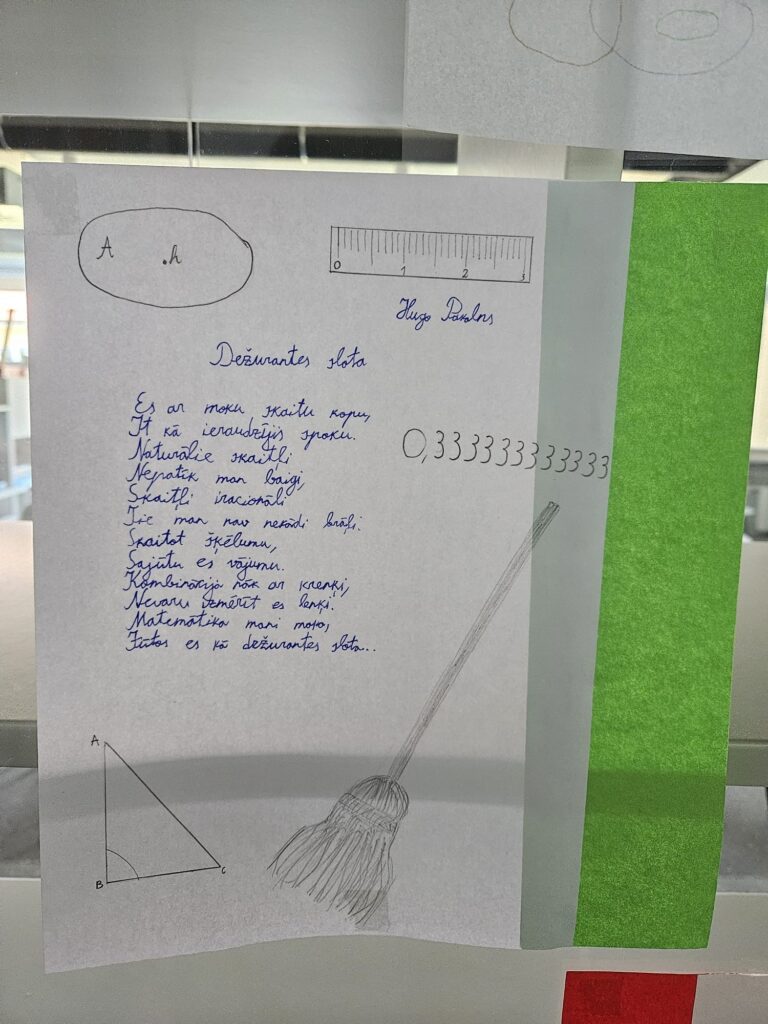 A
.h
0 1 2 3
Hugo Pakalns
Dežurantes slota
Es ar moku skaitu kopu,
It kā ieraudzījis spoku.
Naturālie skaitļi
Nepatīk man baigi,
Skaitļi iracionāli
Tie man nav nekādi brāļi.
Skaitot šķēlumu,
Sajūtu es vājumu.
Kombinācija nāk ar kreņķi,
Nevaru izmērīt es leņķi.
Matemātika mani moka,
Jūtos es kā dežurantes slota..
0,333333333333
A
B
C